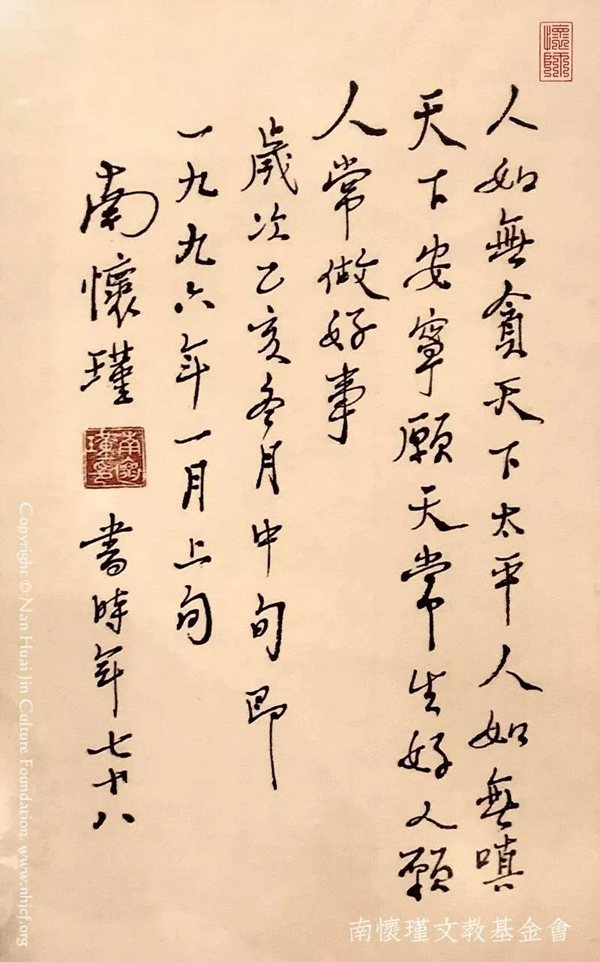 懷師
人如無貪天下太平人如無嗔
天下安寧願天常生好人願
人常做好事
歲次乙亥冬月中旬即
一九九六年一月上旬
南懷瑾 書時年七十八
Copyright © Nan Huai Jin Culture Foundation, www.nhjcf.org
南懷瑾文教基金會